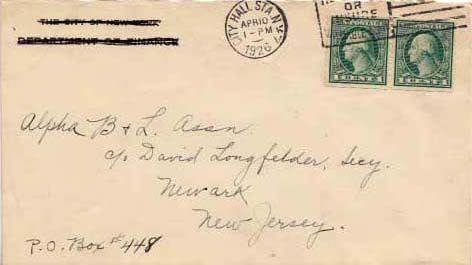 THE CITY OF NEW YORK
DEPARTMENT OF FINANCE
CITY HALL STA. N.Y.
APR 10
1-PM
1926
OR
POSTAGE
POSTAGE
1 CENT 1
1 CENT 1
Alpha B & L. Assn.
c/o David Longfelder, Secy.
Newark
New Jersey.
P.O. Box # 448